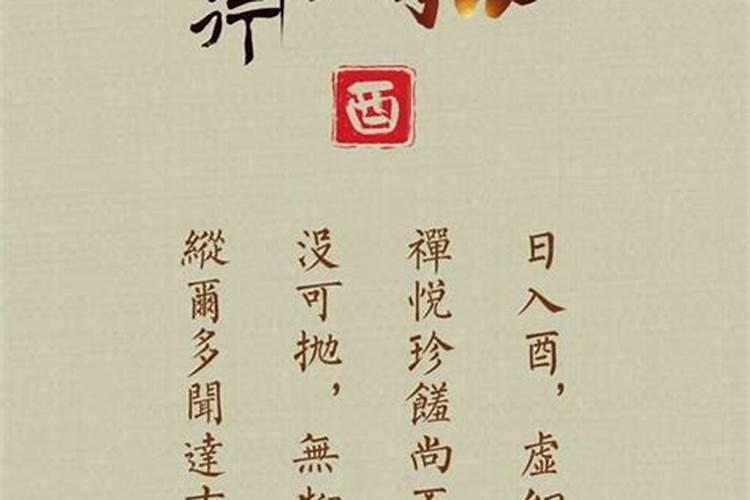 酉
日入酉，虛
禪悅珍饈尚
沒可抛，無
縱爾多聞達